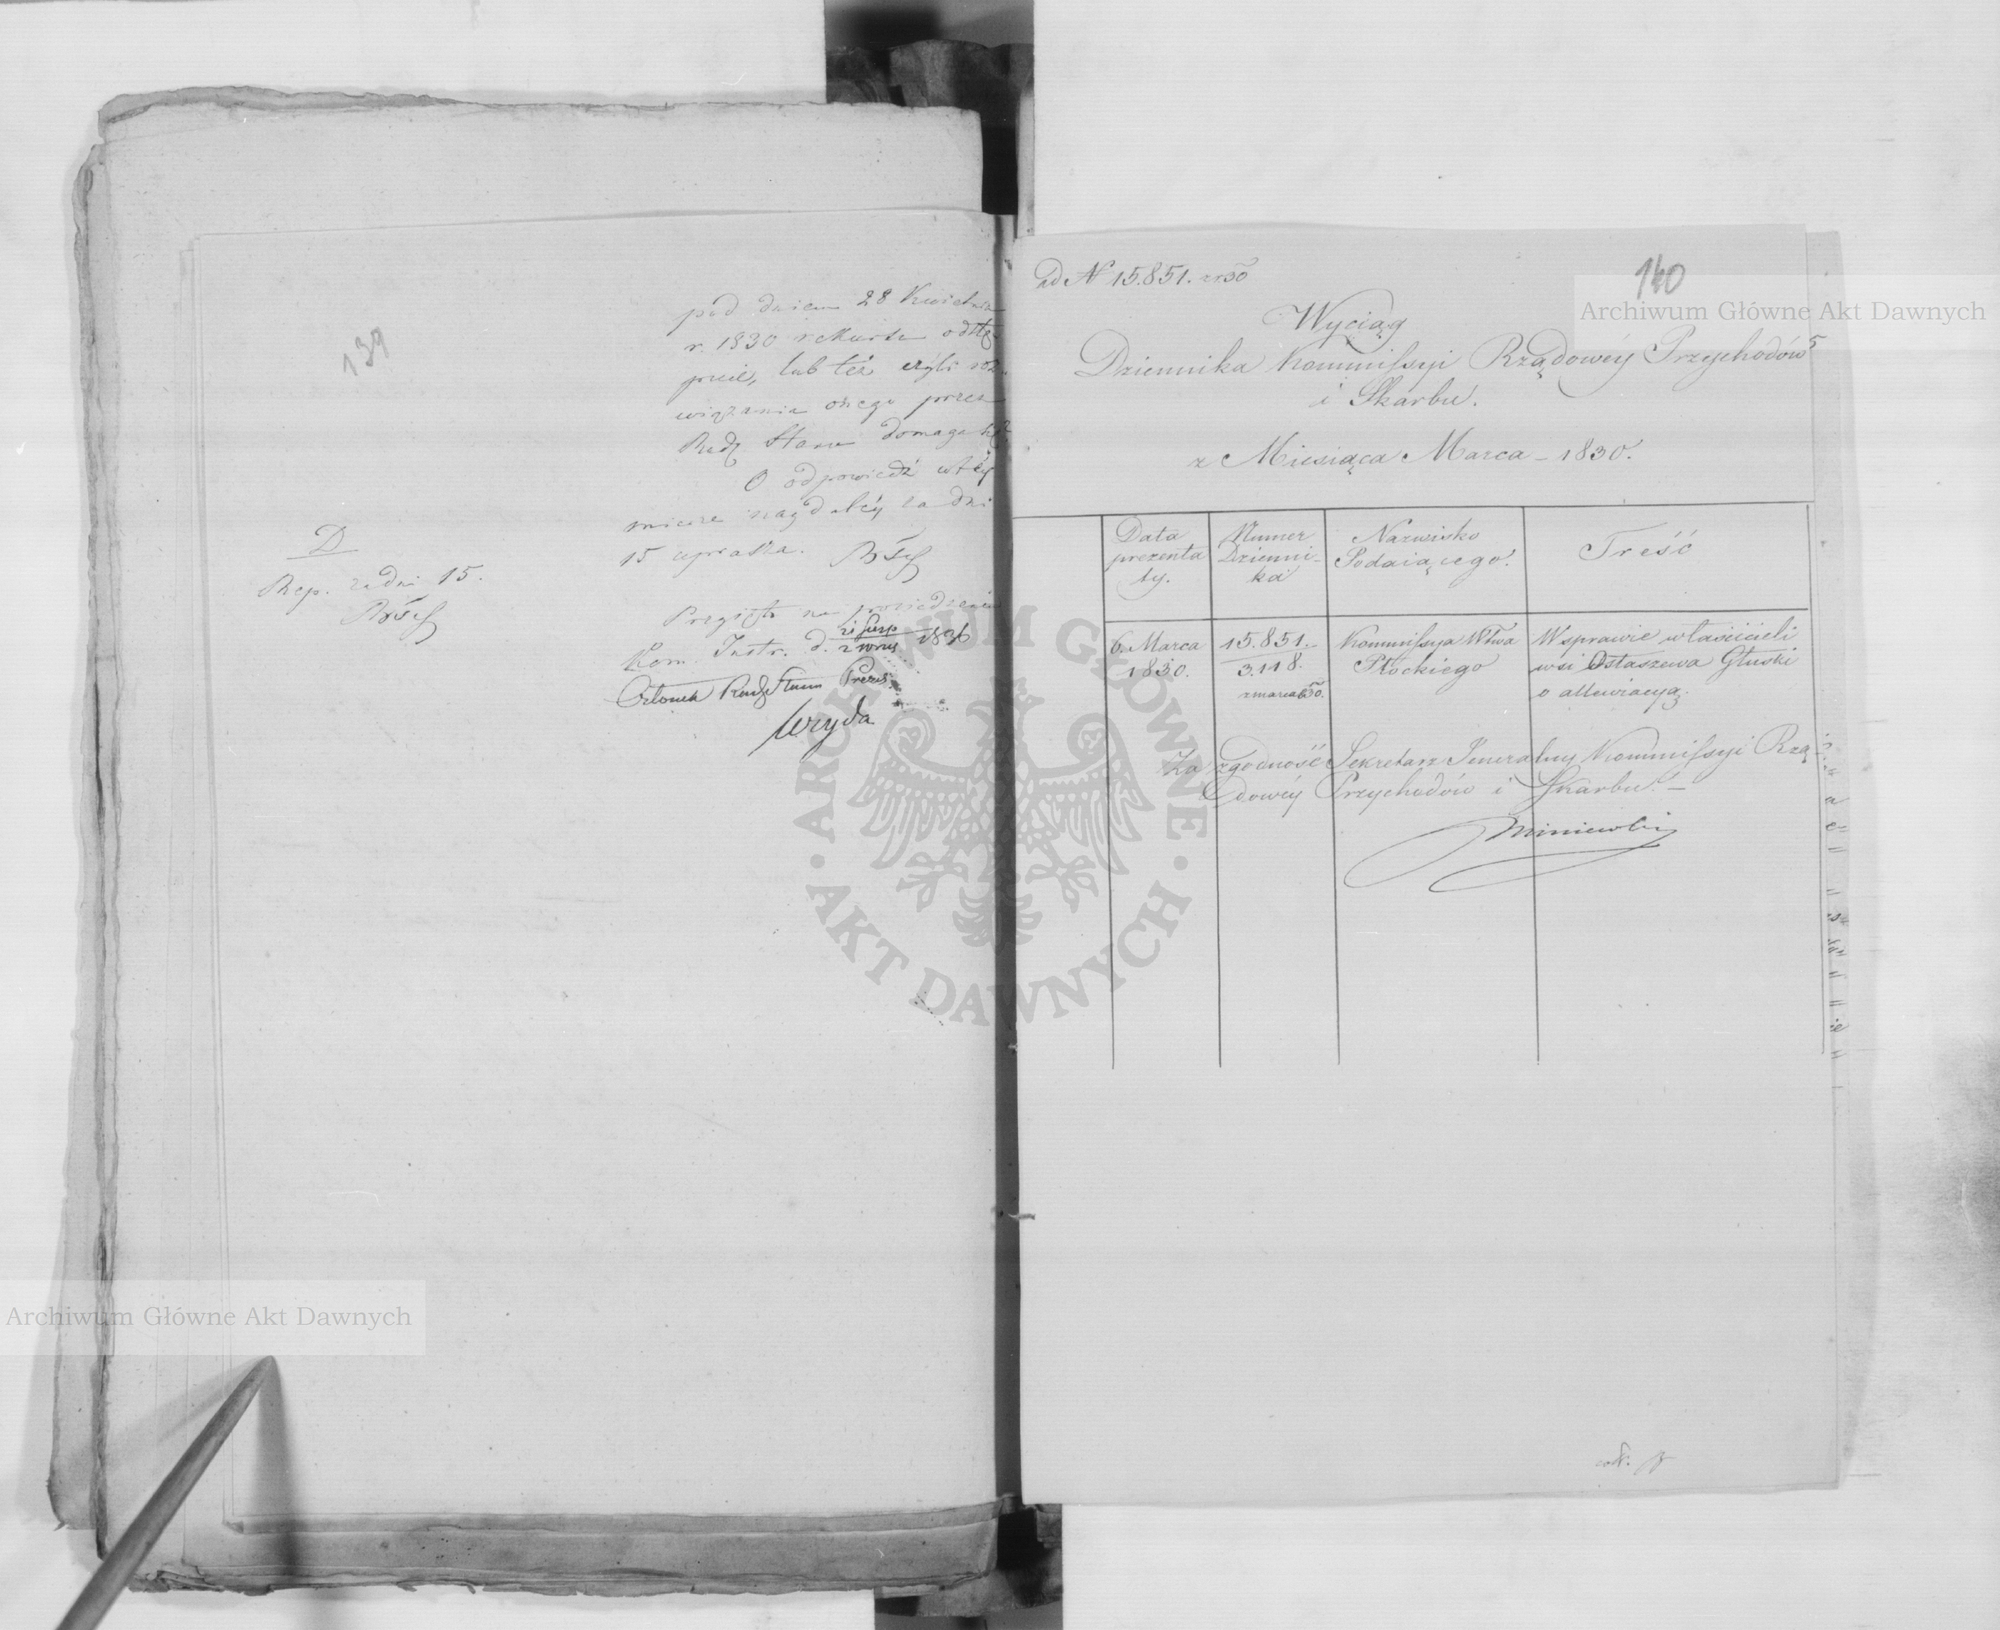 139
pod dniem 28 Kwietnia
r. 1830 rekursu odstą-
pucie, lub też czyli roz-
wiązania onego przez
Radę Stanu domaga się
O odpowiedź w tey
mierze nagdaléy za dni
15 uprasza.
D
Rep. za dni 15.
Przyięto na posiedzeniu
Kom. Instr. d. 21 Sierp 2 Wrześ 1836
Członek Rady Stanu Prezes
Wryda
140
ad N 15.851. 1830
Wyciąg
Dziennika Kommissyi Rządowéy Przychodów
i Skarbu.
z Miesiąca Marca - 1830.
Data prezenta ty. Numer Dzienni- ka Nazwisko Podaiącego. Treść
6. Marca 1830. 15.851. 3.118. z marca 830. Kommissya Wtwa Płockiego W sprawie właścicieli wsi Ostaszewa Głuski o allewiacyą.
Za zgodność Sekretarz Jeneralny Kommissyi Rzą
dowéy Przychodów i Skarbu. -
Archiwum Główne Akt Dawnych
Archiwum Główne Akt Dawnych
ARCHIWUM GŁÓWNE AKT DAWNYCH